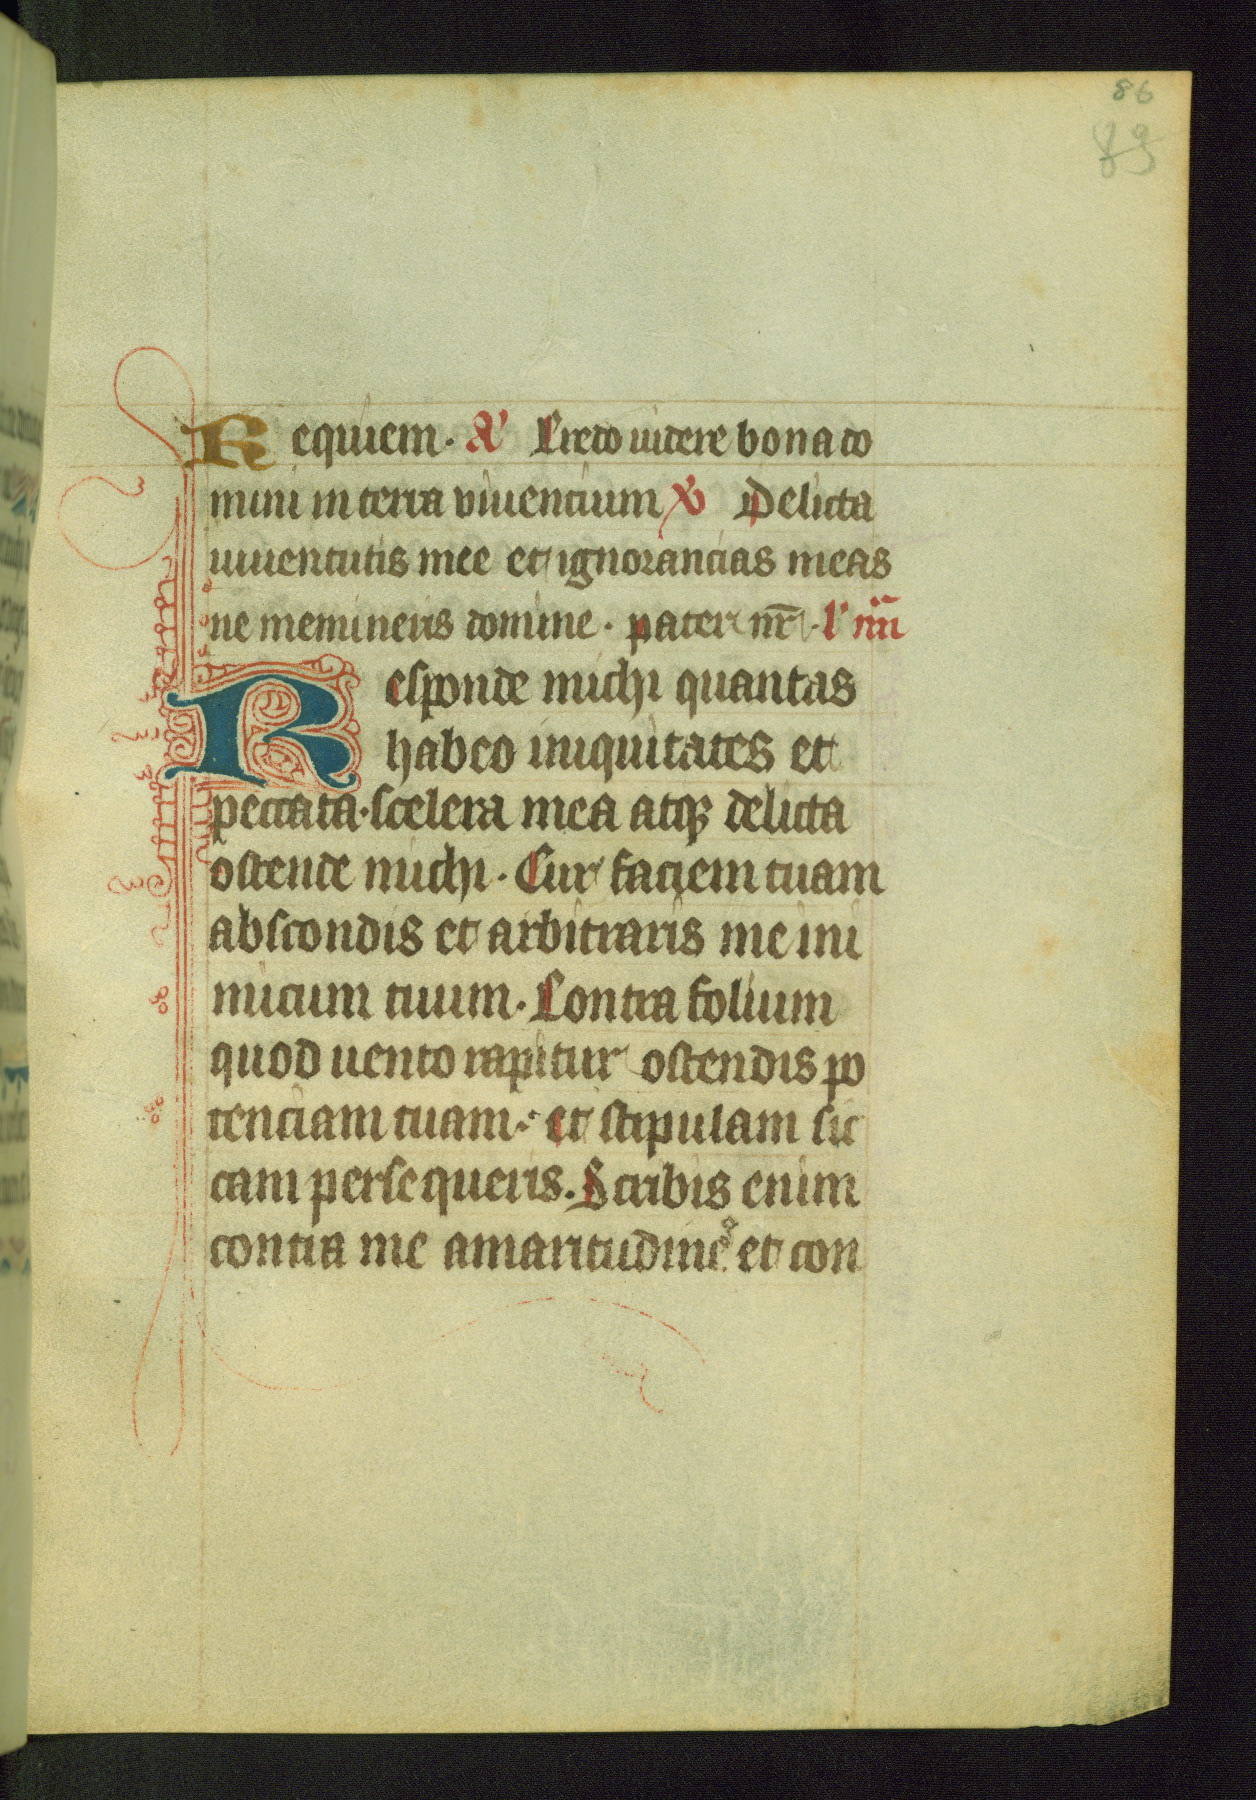 86
89
Requiem. A' Credo uidere bona do
mini in terra viuencium V' Delicta
iuuentutis mee et ignorancias meas
ne memineris domine. pater nr̄. l' iiii
Responde michi quantas
habeo iniquitates et
peccata. scelera mea atqꝫ delicta
ostende michi. Cur faciem tuam
abscondis et arbitraris me ini
micum tuum. Contra folium
quod uento rapitur ostendis po
tenciam tuam. et stipulam sic
cam persequeris. Scribis enim
contra me amaritudine et con